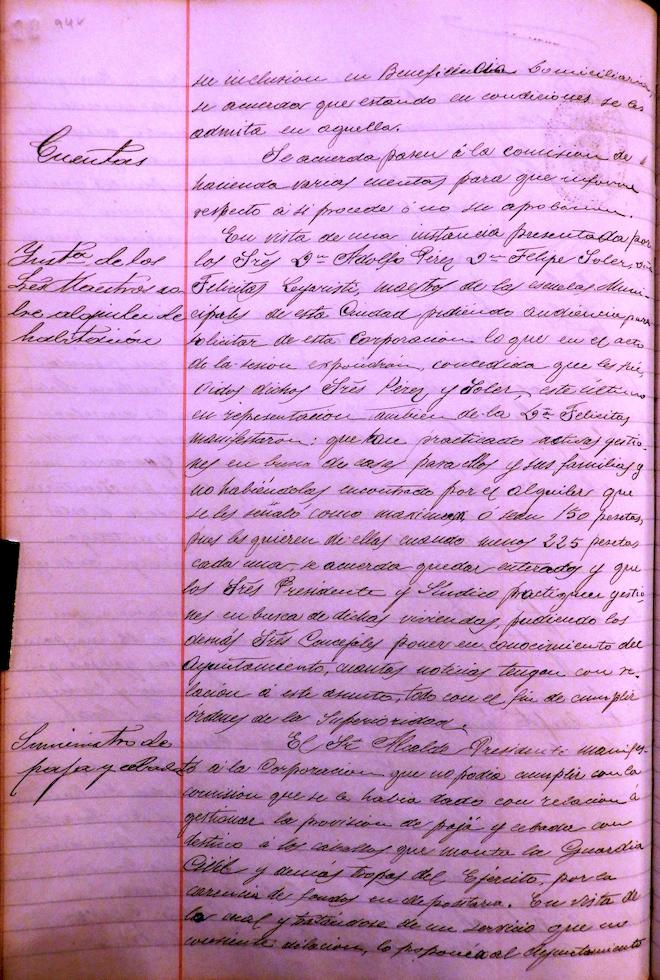 su inclusion en Beneficencia Domiciliaria,
se acuerda que estando en condiciones se les
admita en aquella.
Cuentas
Se acuerda pasen á la comision de
hacienda varias cuentas para que informe
respecto á si procede ó no su aprobacion.
Insta de los
Sres Maestros so
bre alquiler de
habitación
En vista de una instancia presentada por
los Sres Dn Adolfo Perez Dn Felipe Soler,
Felicitas maestros de las escuelas Muni-
cipales de esta Ciudad pidiendo audiencia para
solicitar de esta Corporacion lo que en el acto
de la sesion expondrian, concedida que les fué,
oidos dichos Sres Perez y Soler, este último
en representacion tambien de la Dña Felicitas
manifestaron: que han practicado activas gestio-
nes en busca de casas para ellos y sus familias y
no habiéndolas encontrado por el alquiler que
se les señaló como maximum ó sean 150 pesetas,
pues les quieren de ellas cuando menos 225 pesetas
cada una, se acuerda quedar enterados y que
los Sres Presidente y Síndico practiquen gestio-
nes en busca de dichas viviendas, pudiendo los
demás Sres Concejales poner en conocimiento del
Ayuntamiento, cuantas noticias tengan con re-
lación á este asunto, todo con el fin de cumplir
órdenes de la Superioridad.
Suministro de
paja y cebada
El Sr Alcalde Presidente manifes-
tó á la Corporacion que no podia cumplir con la
comision que se le habia dado con relacion á
gestionar la provision de paja y cebada con
destino á los caballos que monta la Guardia
Civil y demás tropas del Ejercito, por la
carencia de fondos en depositaria. En vista de
lo cual y tratándose de un servicio que no
consiente dilacion, lo proponia al Ayuntamiento